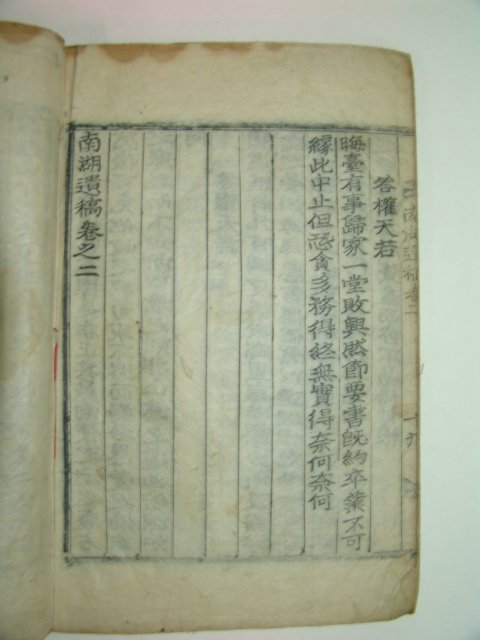 答權天若
晦臺有事歸家一堂敗興然節要書旣約卒業不可
緣此中止但恐貪多務得終無實得奈何奈何
南湖遺稿卷之二